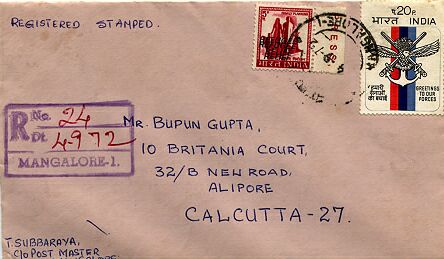 REGISTERED STAMPED.
भारत INDIA
प.20P
भारत INDIA
हमारी
सेनाओं
को बधाई
GREETINGS
TO OUR
FORCES
MANGALORE-1
4-9-72
R No. 24
Dt. 4-9 72
MANGALORE-1.
Mr. BUPUN GUPTA,
10 BRITANIA COURT,
32/B NEW ROAD,
ALIPORE
CALCUTTA-27.
T. SUBBARAYA,
C/O POST MASTER